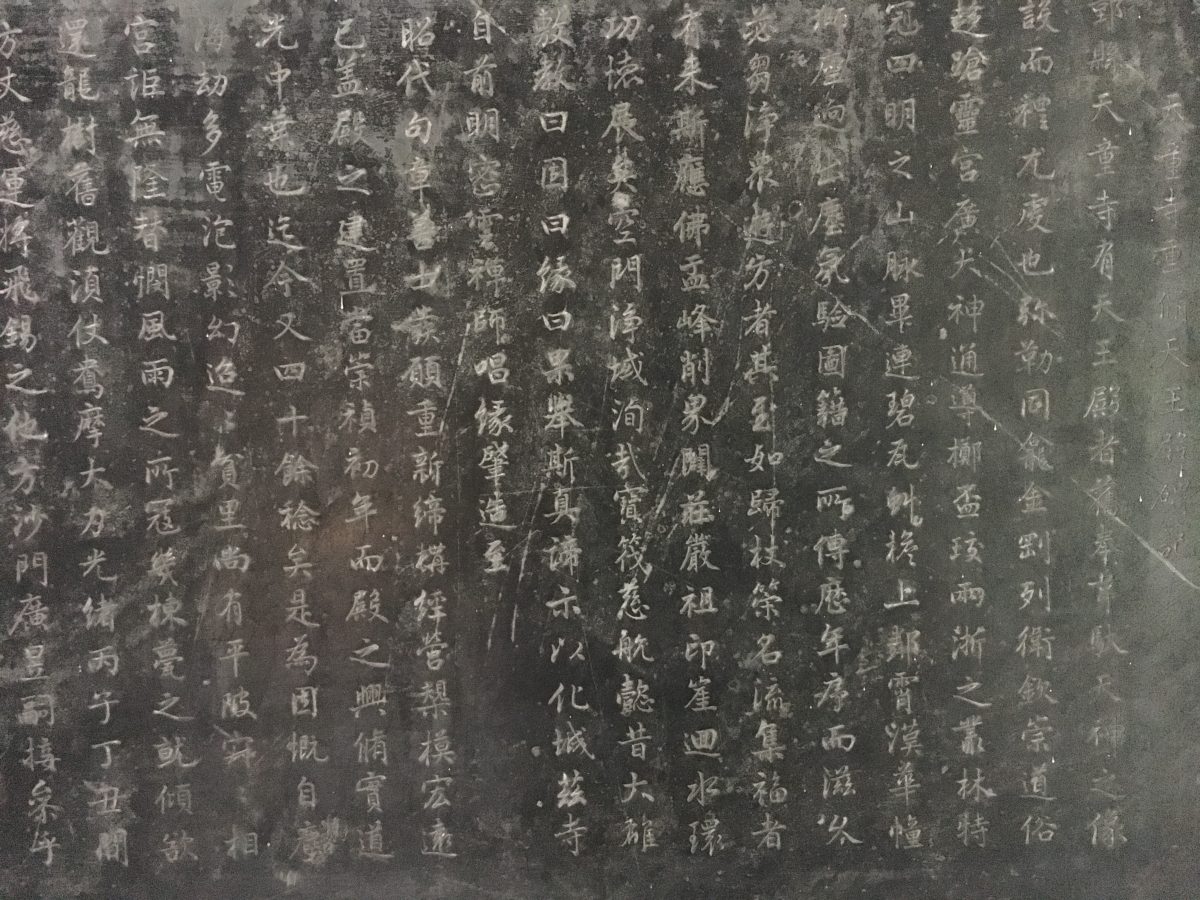 天童寺重修天王
鄞縣天童寺有天王殿者舊奉韋馱天神之像
設而禮尤虔也弥勒同龕金剛列衛欽崇道俗
趍蹌靈宮廣大神通導擲盃珓兩浙之叢林特
冠四明之山脉畢連碧瓦虯檐上鄰霄漢華幢
座逈出塵氛驗圖籍之所傳歷年序而滋久
苾芻淨衆遊方者其至如歸杖策名流集福者
有来斯應佛盂峰削界闢莊嚴祖印崖迴水環
功德展矣空門淨域洵哉寶筏慈航懿昔大雄
敷教曰因曰緣曰果舉斯真諦示以化城茲寺
自前明密雲禪師唱緣肇造至
昭代句章善士發願重新締構經營榘模宏遠
已盖殿之建置當崇禎初年而殿之興脩實道
光中葉也迄今又四十餘稔矣是為因慨自塵
海劫多電泡影幻迢 賀里尚有平陂穽 相
宮詎無隆替憫風雨之所寇幾棟甍之就傾欲
還龍樹舊觀湏仗鴦摩大力光緒丙午丁丑間
方丈慈運將飛錫之他方沙門廣昱嗣接衆